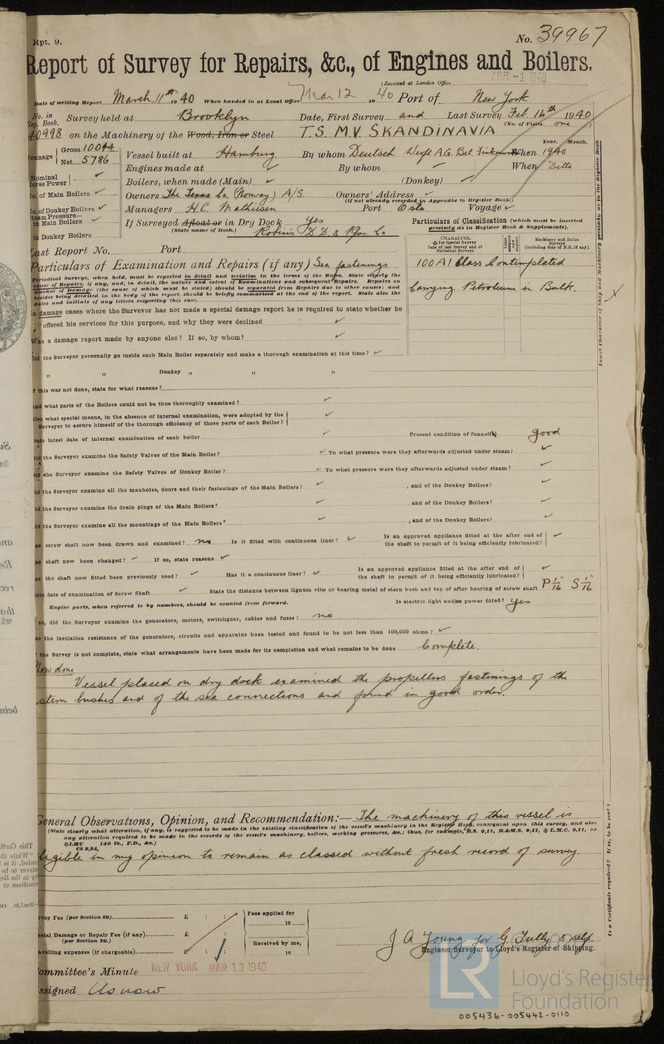 Rpt. 9.
No. 39967
Report of Survey for Repairs, &c., of Engines and Boilers.
(Received at London Office
APR -1 1940
Date of writing Report March 11th 1940 When handed in at Local Office Mar 12 1940 Port of New York
No. in Reg. Book. Survey held at Brooklyn Date, First Survey and Last Survey Feb. 14th 1940
(No. of Visits one)
40998 on the Machinery of the Wood, Iron or Steel T.S. M.V. SKANDINAVIA
Gross 10044
Net 5786
Vessel built at Hamburg By whom Deutsch Werft A.G. When 1940
Year. Month.
Engines made at By whom When Ditto
Nominal Horse Power
Boilers, when made (Main) (Donkey)
No. of Main Boilers
Owners The Texas Co. (Norway) A/S. Owners' Address
(if not already recorded in Appendix to Register Book.)
No. of Donkey Boilers
Managers H.C. Mathiesen Port Oslo Voyage
Steam Pressure—
in Main Boilers
in Donkey Boilers
If Surveyed Afloat or in Dry Dock Yes
(State name of Dock.) Robins D.D. &
Particulars of Classification (which must be inserted precisely as in Register Book & Supplements).
Last Report No. Port
Particulars of Examination and Repairs (if any) Sea fastenings
100A1 Class Contemplated
Carrying Petroleum in Bulk.
In damage cases where the Surveyor has not made a special damage report he is required to state whether he
offered his services for this purpose, and why they were declined
Was a damage report made by anyone else? If so, by whom?
Did the Surveyor personally go inside each Main Boiler separately and make a thorough examination at this time?
„ „ Donkey „ „ „
If this was not done, state for what reasons?
And what parts of the Boilers could not be thoroughly examined?
Also what special means, in the absence of internal examination, were adopted by the
Surveyor to assure himself of the thorough efficiency of those parts of each Boiler?
State latest date of internal examination of each boiler Present condition of funnel(s) good
Did the Surveyor examine the Safety Valves of the Main Boiler? To what pressure were they afterwards adjusted under steam?
Did the Surveyor examine the Safety Valves of Donkey Boiler? To what pressure were they afterwards adjusted under steam?
Did the Surveyor examine all the manholes, doors and their fastenings of the Main Boilers? , and of the Donkey Boilers?
Did the Surveyor examine the drain plugs of the Main Boilers? , and of the Donkey Boilers?
Did the Surveyor examine all the mountings of the Main Boilers? , and of the Donkey Boilers?
Has screw shaft now been drawn and examined? no Is it fitted with continuous liner? Is an approved appliance fitted at the after end of
the shaft to permit of it being efficiently lubricated?
Has shaft now been changed? If so, state reasons
Has the shaft now fitted been previously used? Has it a continuous liner? Is an approved appliance fitted at the after end of
the shaft to permit of it being efficiently lubricated?
State date of examination of Screw Shaft State the distance between lignum vitæ or bearing metal of stern bush and top of after bearing of screw shaft P 1/16 S 1/16
Engine parts, when referred to by numbers, should be counted from forward. Is electric light and/or power fitted? yes
If so, did the Surveyor examine the generators, motors, switchgear, cables and fuses? no
Has the insulation resistance of the generators, circuits and apparatus been tested and found to be not less than 100,000 ohms?
If the Survey is not complete, state what arrangements have been made for its completion and what remains to be done Complete.
Now done
Vessel placed on dry dock examined the propellers fastenings of the
stern bushes and of the sea connections and found in good order.
General Observations, Opinion, and Recommendation:— The machinery of this vessel is
eligible in my opinion to remain as classed without fresh record of survey
Survey Fee (per Section 29) £ : : Fees applied for
Special Damage or Repair Fee (if any) £ : : 19
(per Section 29.)
Travelling expenses (if chargeable) £ : : Received by me, 19
J A Young for G. Tully & self.
Engineer Surveyor to Lloyd's Register of Shipping.
Committee's Minute NEW YORK MAR 13 1940
Assigned As now
LR
Lloyd's Register
Foundation
005436-005442-0110